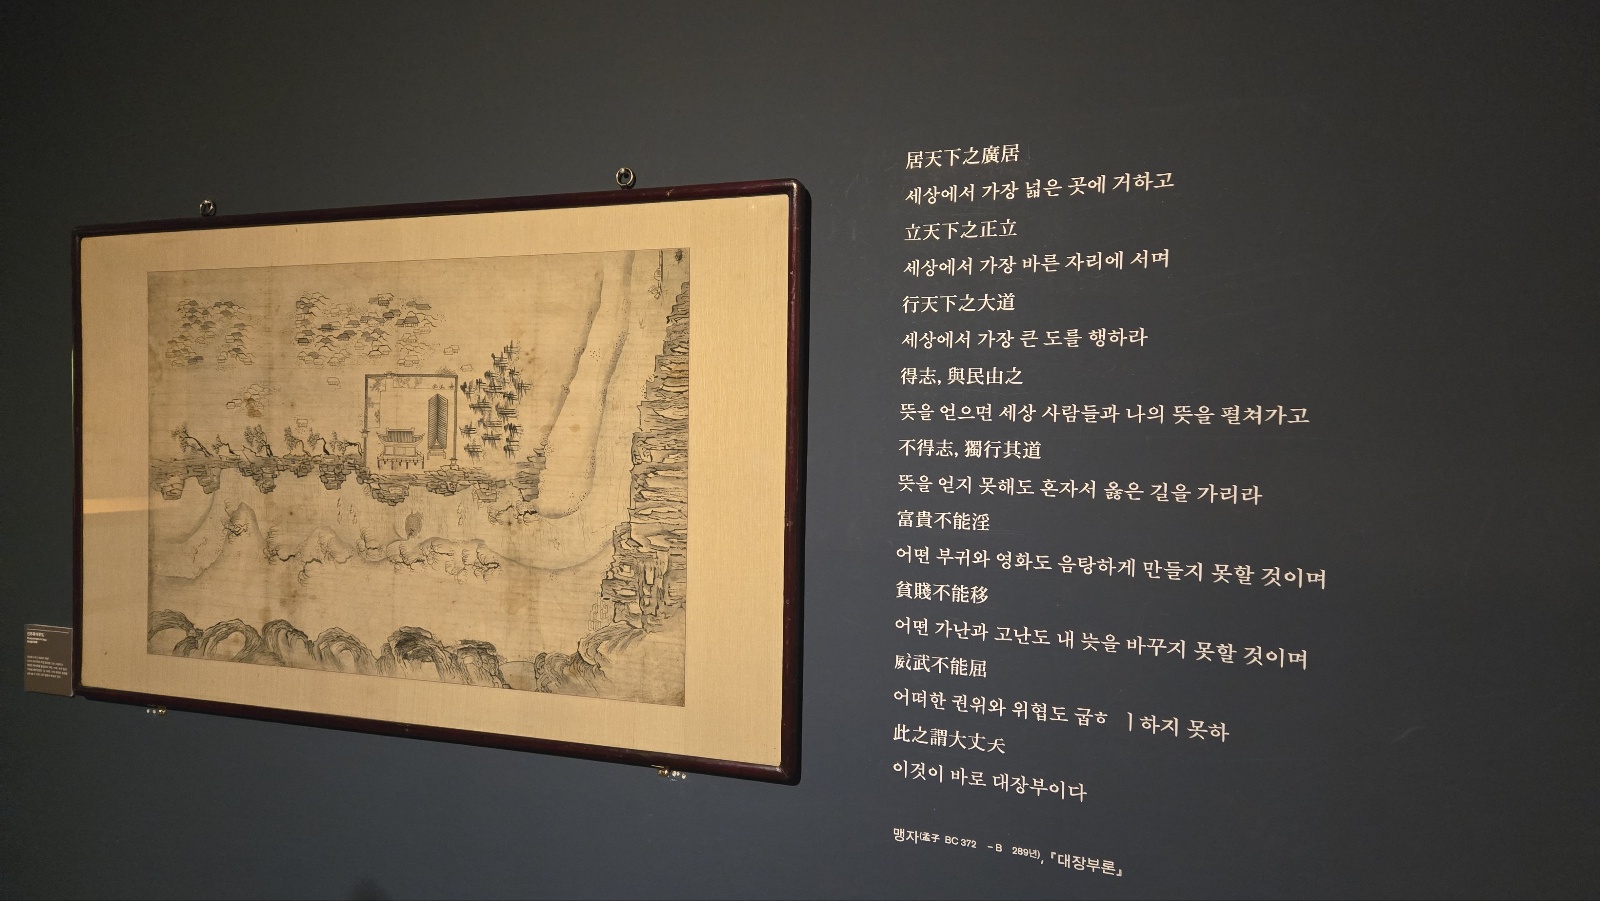 居天下之廣居
세상에서 가장 넓은 곳에 거하고
立天下之正立
세상에서 가장 바른 자리에 서며
行天下之大道
세상에서 가장 큰 도를 행하라
得志, 與民山之
뜻을 얻으면 세상 사람들과 나의 뜻을 펼쳐가고
不得志, 獨行其道
뜻을 얻지 못해도 혼자서 옳은 길을 가리라
富貴不能淫
어떤 부귀와 영화도 음탕하게 만들지 못할 것이며
貧賤不能移
어떤 가난과 고난도 내 뜻을 바꾸지 못할 것이며
威武不能屈
어떠한 권위와 위협도 굽ㅎ ㅣ하지 못하
此之謂大丈夭
이것이 바로 대장부이다
맹자(孟子 BC 372 – B 289년), 『대장부론』